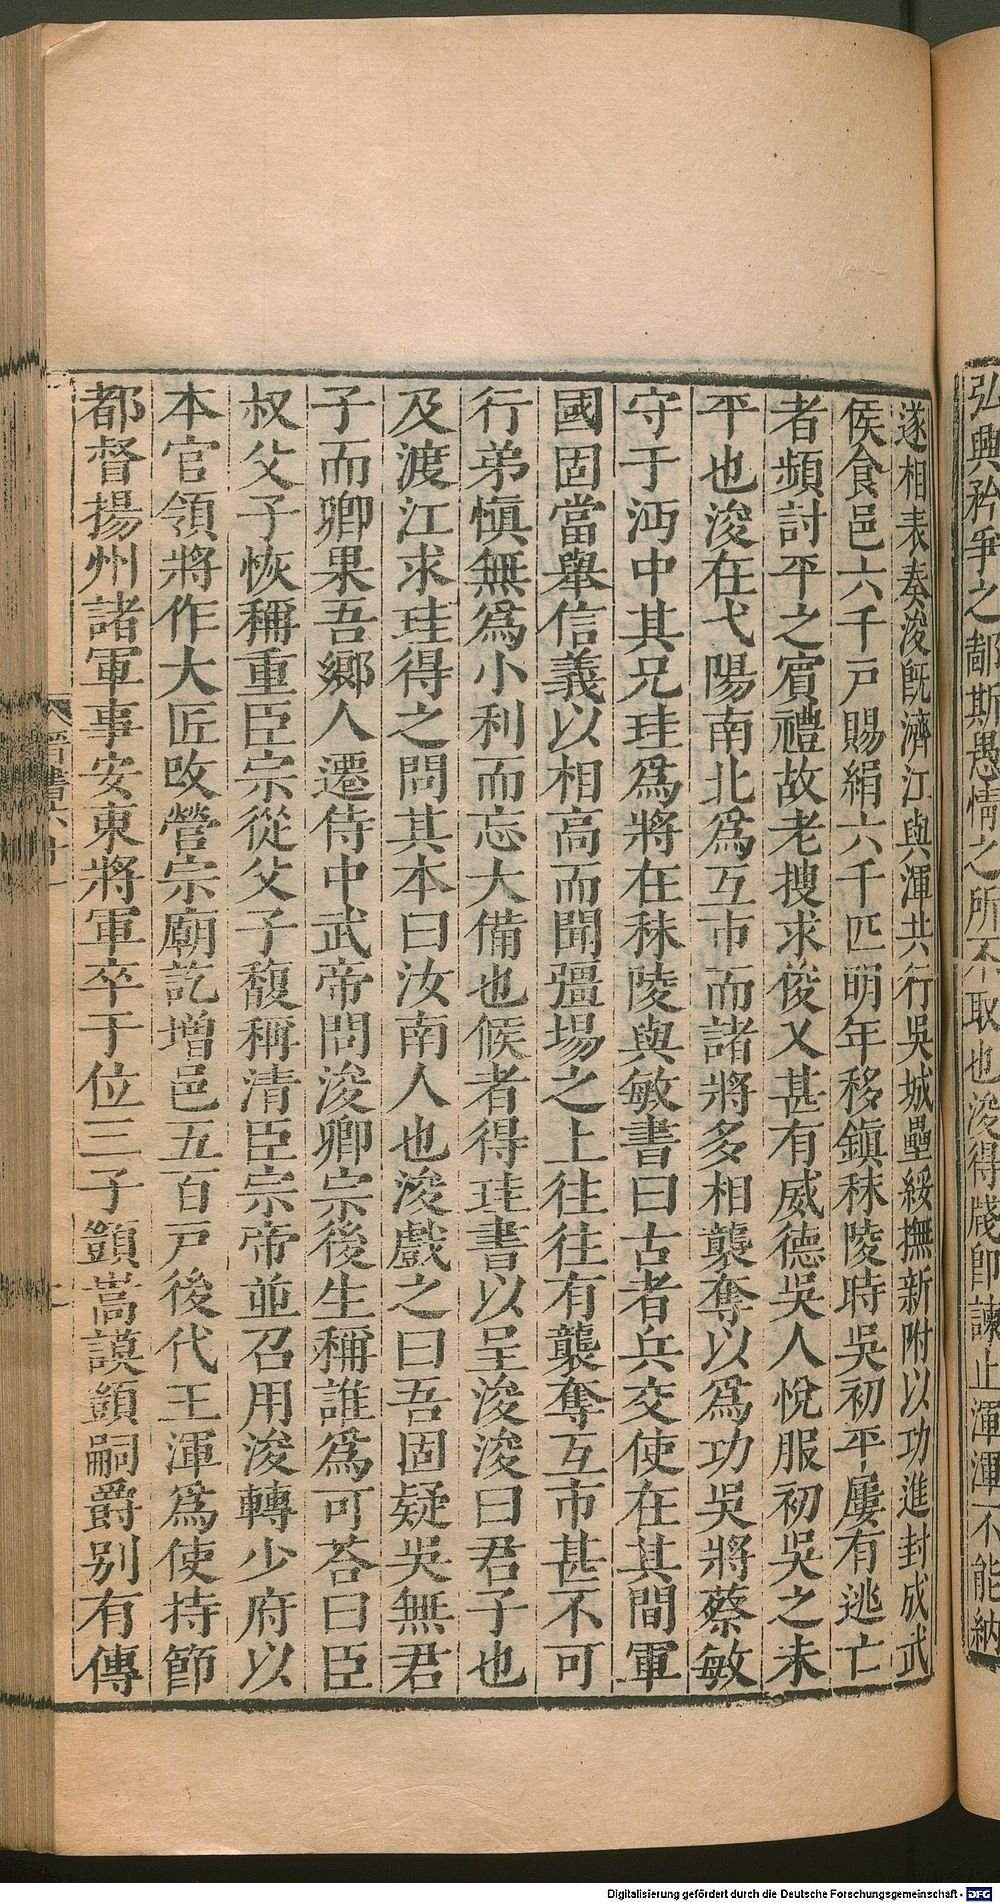 弘興矜爭之鄙斯愚情之所不取也浚得牋卽諫止渾渾不能納
遂相表奏浚旣濟江與渾共行吳城壘綏撫新附以功進封成武
侯食邑六千戸賜絹六千匹明年移鎭秣陵時吳初平屢有逃亡
者頻討平之賓禮故老搜求俊乂甚有威德吳人悅服初吳之未
平也浚在弋陽南北爲互市而諸將多相襲奪以爲功吳將蔡敏
守于沔中其兄珪爲將在秣陵與敏書曰古者兵交使在其間軍
國固當舉信義以相高而聞彊場之上往往有襲奪互市甚不可
行弟愼無爲小利而忘大備也候者得珪書以呈浚浚曰君子也
及渡江求珪得之問其本曰汝南人也浚戲之曰吾固疑吳無君
子而卿果吾鄉人遷侍中武帝問浚卿宗後生稱誰爲可荅曰臣
叔父子恢稱重臣宗從父子馥稱清臣宗帝並召用浚轉少府以
本官領將作大匠改營宗廟訖增邑五百戸後代王渾爲使持節
都督揚州諸軍事安東將軍卒于位三子顗嵩謨顗嗣爵别有傳
晉書
Digitalisierung gefördert durch die Deutsche Forschungsgemeinschaft - DFG